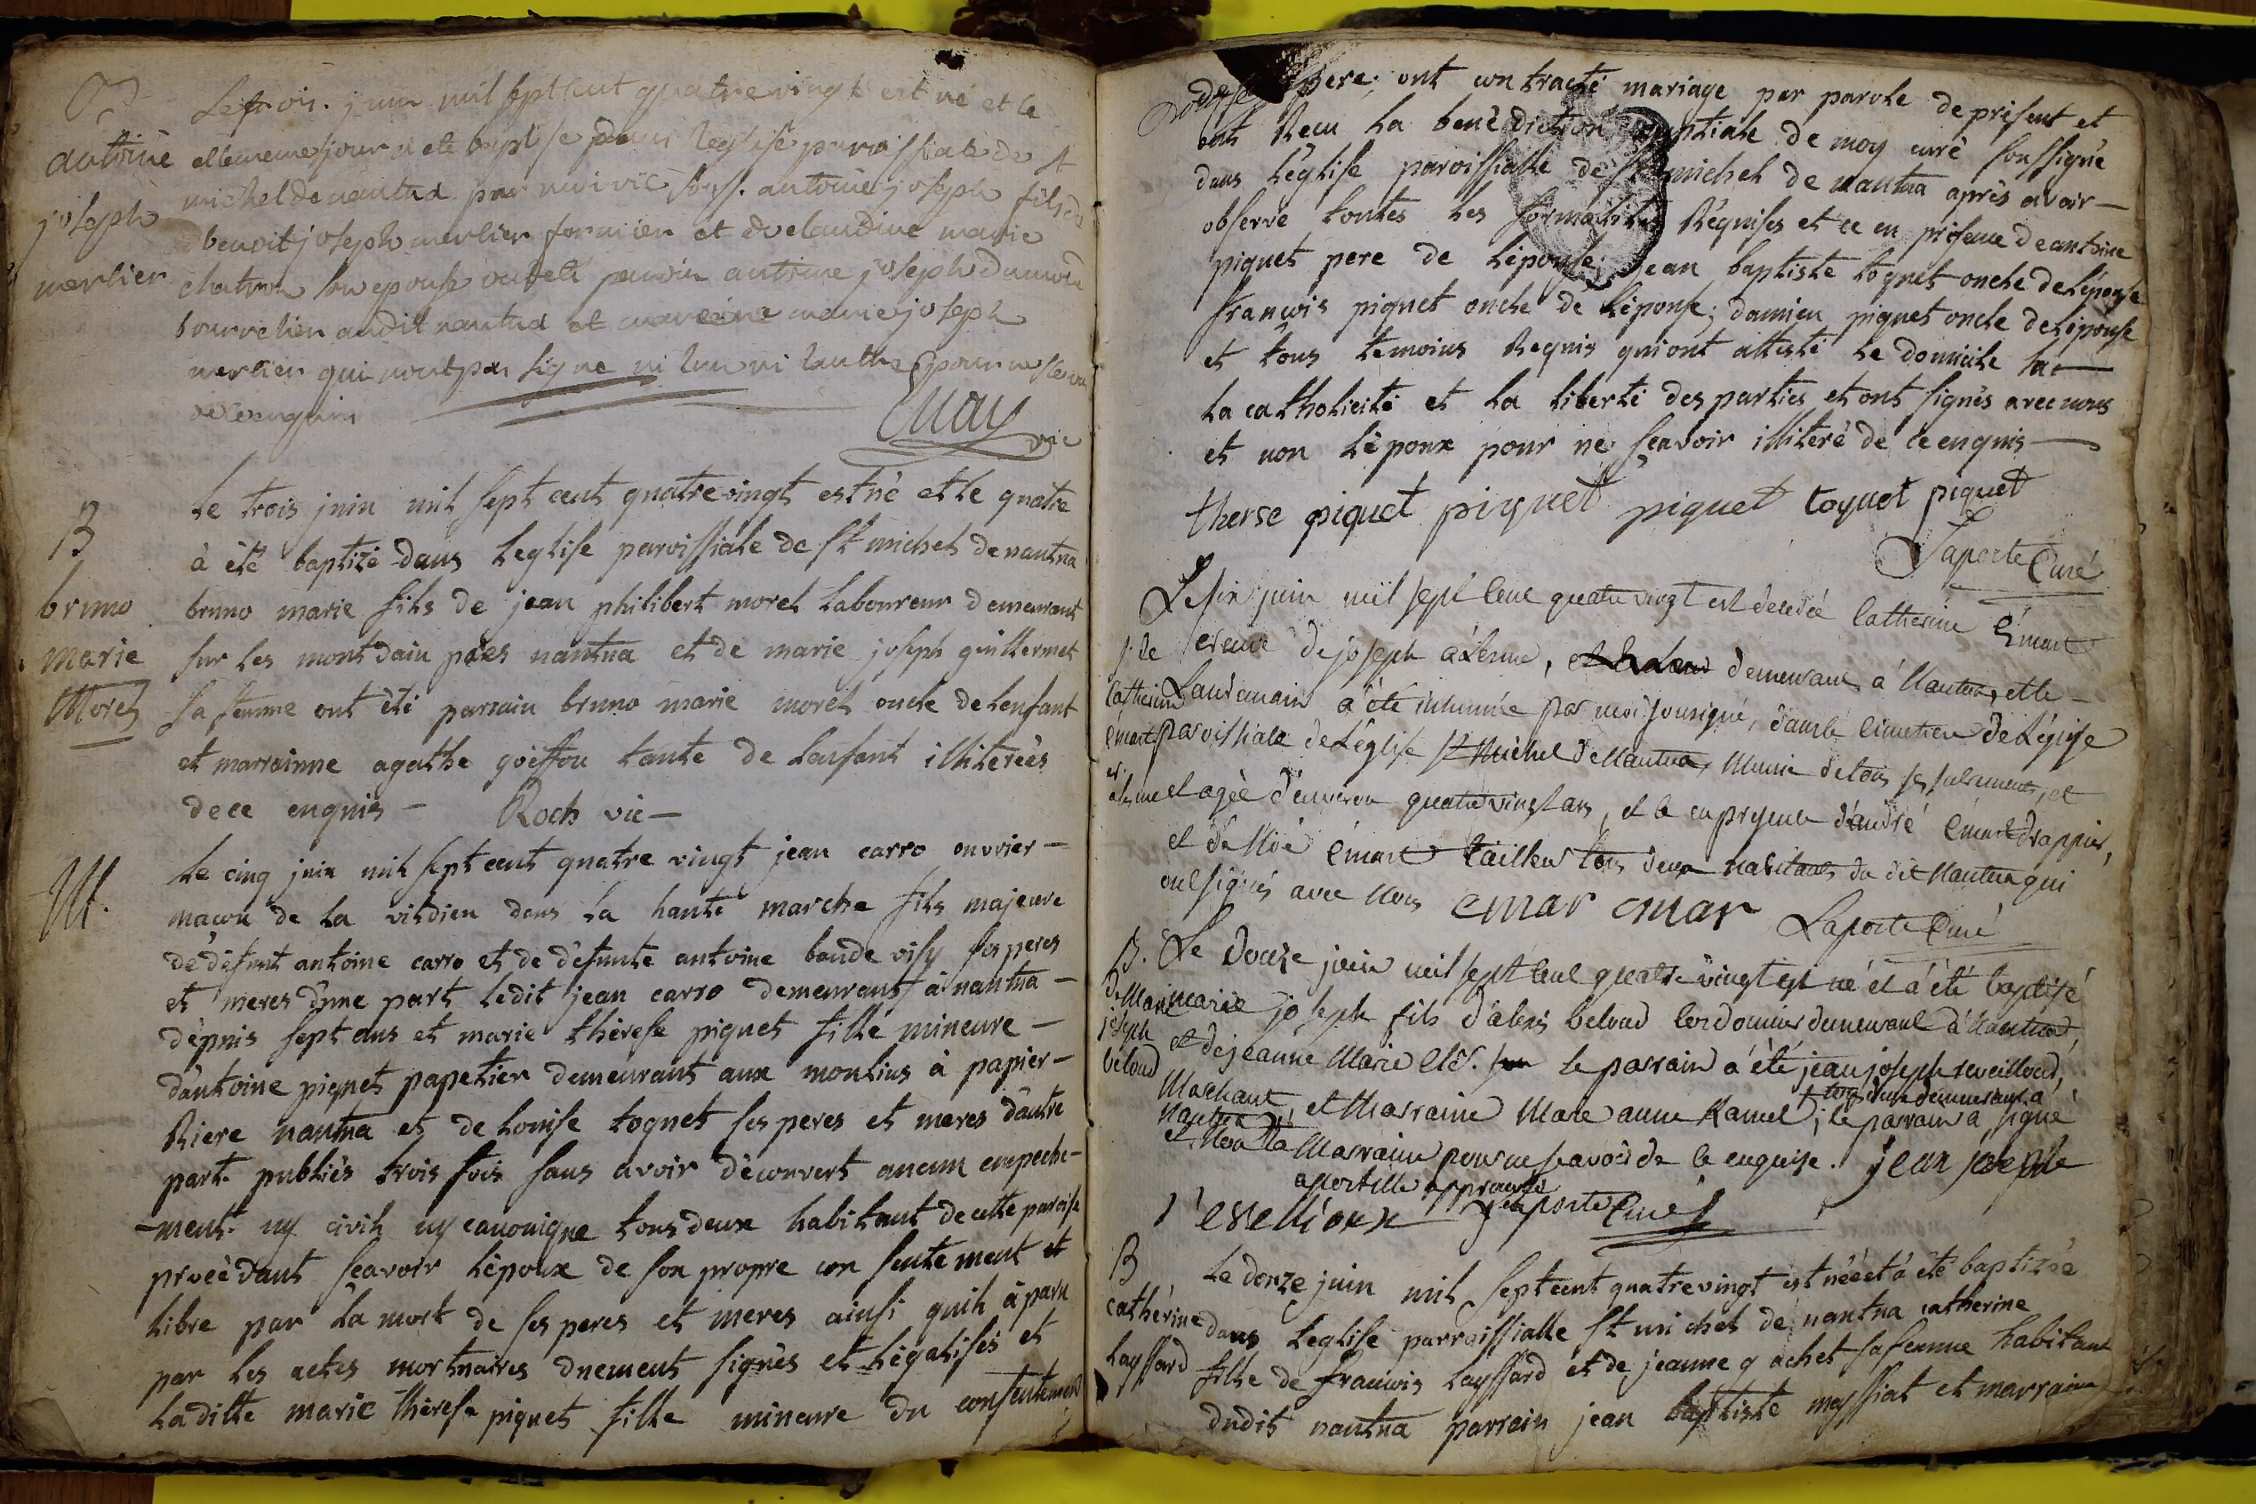 B
antoine
joseph
merlier
Le trois juin mil sept cent quatre vingt est né et le
mesme jour a eté baptisé dans l'eglise paroissiale de st
michel de nantua par moi vic. antoine joseph fils de
benoit joseph merlier fermier et de claudine marie
son epouse ont eté parain antoine joseph
audit nantua et mareine marie joseph
merlier qui nont pas signe ni lun ni lautre pour ne scavoir
de ce enquis
vic
B
bruno
marie
Morel
Le trois juin mil sept cent quatrevingt est né et le quatre
à été baptizé dans Leglise paroissiale de st michel de nantua
bruno marie fils de jean philibert morel laboureur demeurant
sur les mont dain près nantua et de marie joseph guillermet
sa femme ont èté parrain bruno marie morel oncle de lenfant
et marrainne agathe goiffon tante de lenfant illiterées
de ce enquis – Roch vic –
M.
Le cinq juin mil sept cent quatre vingt jean carro ouvrier –
maçon de la dans la haute marche fils majeure
de défunt antoine carro et de défunte antoine ses peres
et meres d'une part ledit jean carro demeurant à nantua –
dèpuis sept ans et marie thèrese piquet fille mineure –
d'antoine piquet papetier demeurant aux moulins à papier –
Riere nantua et de Louise toquet ses peres et meres d'autre
part publiés trois fois sans avoir dècouvert aucun empeche-
-ment ny civil ny canonique tous deux habitant de cette paroise
procèdant sçavoir lépoux de son propre consentement et
libre par la mort de ses peres et meres ainsi quil à paru
par les actes mortuaires duement signés et légalisés et
laditte marie thèrese piquet fille mineure du consentement
pere, ont contracté mariage par parole de présent et
ont Recu la benèdiction nuptiale de moy curé soussigné
dans l'église paroissialle de st michel de nantua après avoir –
observé toutes les formalités Réquises et ce en présence de antoine
piquet pere de lépouse, jean baptiste toquet oncle de lépouse
françois piquet oncle de lépouse, damien piquet oncle de lépouse
et tous temoins Requis qui ont attesté le domicile la –
la catholicité et la liberté des parties et ont signés avec nous
et non lépoux pour ne sçavoir illiteré de ce enquis –
therse piquet piquet piquet toquet piquet
Laporte Curé
s. de
Catherine
émart
Le six juin mil sept cent quatre vingt est decedée Catherine Emart
veuve de joseph , demeurant à Nantua, et le –
Landemain a été inhumée par moi sousigné, dans le cimetiere de L'église
paroissiale de L'église st Michel de Nantua, Munie de tous ses sacrements, et
agée d'environ quatre vingt ans, et ce en presence d'andré émart drappier,
et de Noé émart tailleur tous deux habitants du dit Nantua qui
ont signés avec Nous emar emar Laporte Curé
B.
de Marie
joseph
béloud
Le Douze juin mil sept cent quatre vingt est né et à été baptisé
marie joseph fils d'alexis beloud Cordonnier demeurant à Nantua,
et de jeanne Marie . le parrain a été jean joseph reveilloud,
Marchant et Marraine Marie anne Ramel, tous deux demeurant à
Nantua; le parrain a signé
et Non la Marraine pour ne scavoir de ce enquise. jean joseph
apostille approuvée
reveilloux Laporte Curé
B
cathérine
Layssard
Le douze juin mil sept cent quatre vingt est néé et à été baptizéé
dans leglise parroissialle st michel de nantua catherine
fille de françois Layssard et de jeanne gachet sa femme habitant
dudit nantua parrain jean baptiste mayssiat et marraine